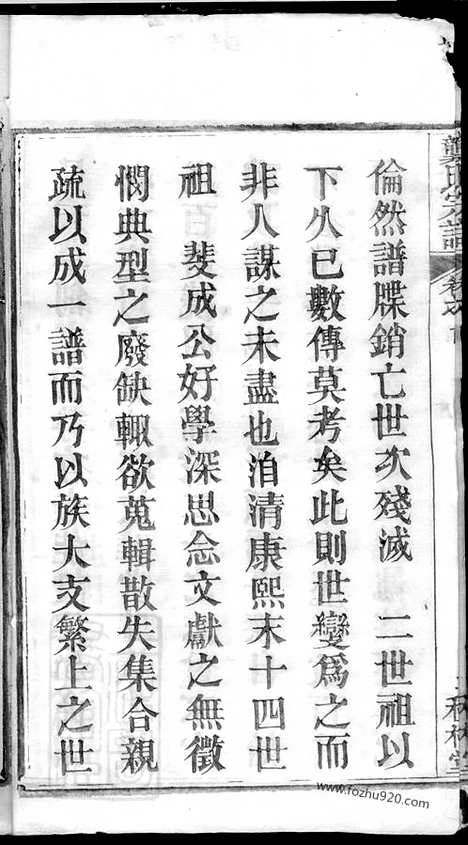 倫然譜牒銷亡世次殘滅　二世祖以
下久已數傳莫考矣此則世變爲之而
非人謀之未盡也洎清康熙末十四世
祖　斐成公好學深思念文獻之無徵
憫典型之廢缺輒欲蒐輯散失集合親
疏以成一譜而乃以族大支繁上之世
www.fozhu920.com